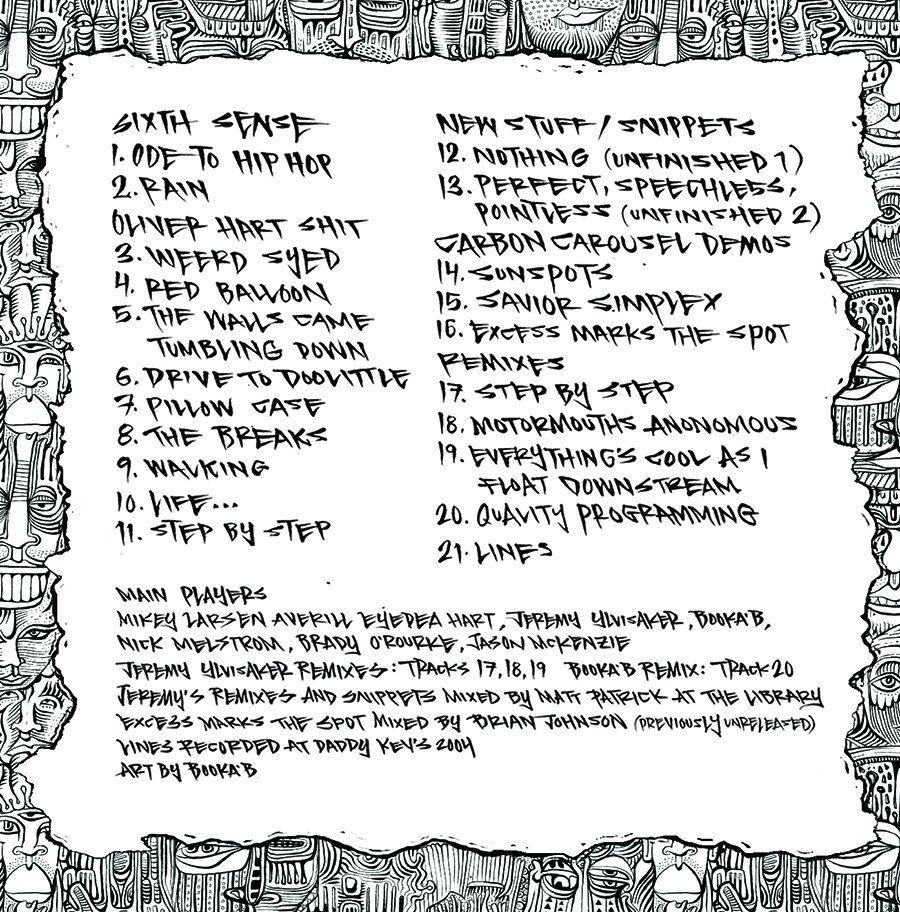 SIXTH SENSE
1. ODE TO HIP HOP
2. RAIN
OLIVER HART SHIT
3. WEERD SYED
4. RED BALLOON
5. THE WALLS CAME
TUMBLING DOWN
6. DRIVE TO DOOLITTLE
7. PILLOW CASE
8. THE BREAKS
9. WALKING
10. LIFE...
11. STEP BY STEP
NEW STUFF / SNIPPETS
12. NOTHING (UNFINISHED 1)
13. PERFECT, SPEECHLESS,
POINTLESS (UNFINISHED 2)
CARBON CAROUSEL DEMOS
14. SUNSPOTS
15. SAVIOR SIMPLEX
16. EXCESS MARKS THE SPOT
REMIXES
17. STEP BY STEP
18. MOTORMOUTHS ANONOMOUS
19. EVERYTHING'S COOL AS I
FLOAT DOWNSTREAM
20. QUALITY PROGRAMMING
21. LINES
MAIN PLAYERS
MIKEY LARSEN AVERILL EYEDEA HART, JEREMY YLVISAKER, BOOKA'B,
NICK MELSTROM, BRADY O'ROURKE, JASON MCKENZIE
JEREMY YLVISAKER REMIXES: TRACKS 17,18,19 BOOKA'B REMIX: TRACK 20
JEREMY'S REMIXES AND SNIPPETS MIXED BY MATT PATRICK AT THE LIBRARY
EXCESS MARKS THE SPOT MIXED BY BRIAN JOHNSON (PREVIOUSLY UNRELEASED)
LINES RECORDED AT DADDY KEV'S 2004
ART BY BOOKA'B